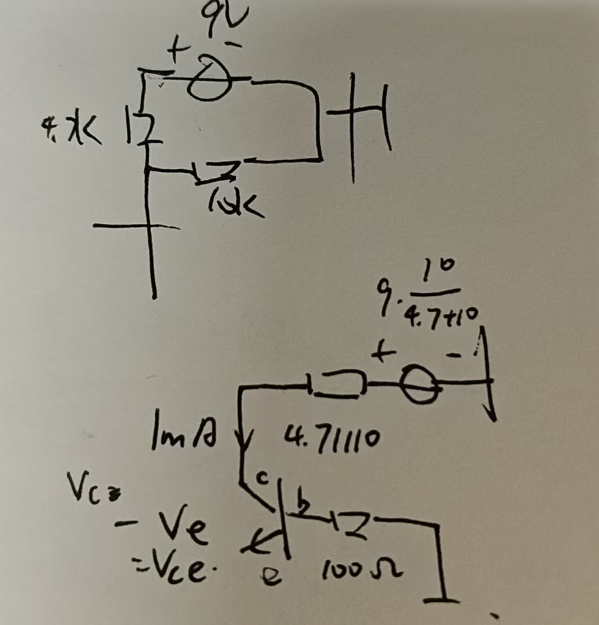 9V
+ -
4.7K
10K
9. 10
4.7+10
+ -
1mA
4.7||10
c
b
Vc
- Ve
=Vce.
e
100Ω